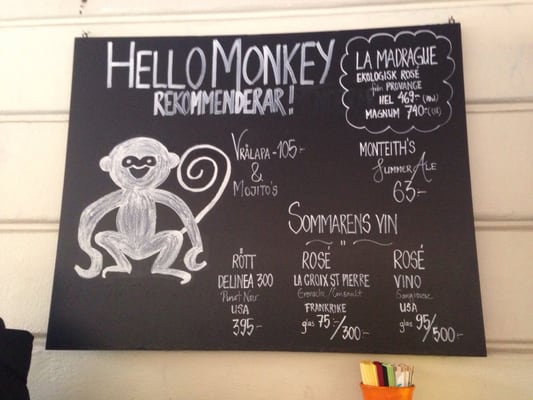 HELLO MONKEY
REKOMMENDERAR!
LA MADRAGUE
EKOLOGISK ROSÉ
från PROVANCE
HEL 469:-
MAGNUM 740:-
VRÅLAPA - 105:-
&
MOJITO'S
MONTEITH'S
SUMMER ALE
63:-
SOMMARENS VIN
RÖTT
DELINEA 300
Pinot Noir
USA
395:-
ROSÉ
LA CROIX ST PIERRE
Grenache/Cinsault
FRANKRIKE
glas 75:-/300:-
ROSÉ
VINO
Sangiovese
USA
glas 95/500:-